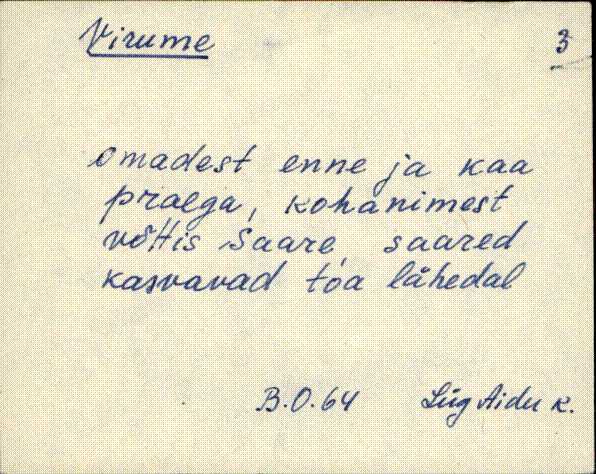 Virume
3
omadest enne ja kaa
praega, kohanimest
võttis Saare, saared
kasvavad tóa lähedal
B.O.64 Lüg Aidu k.